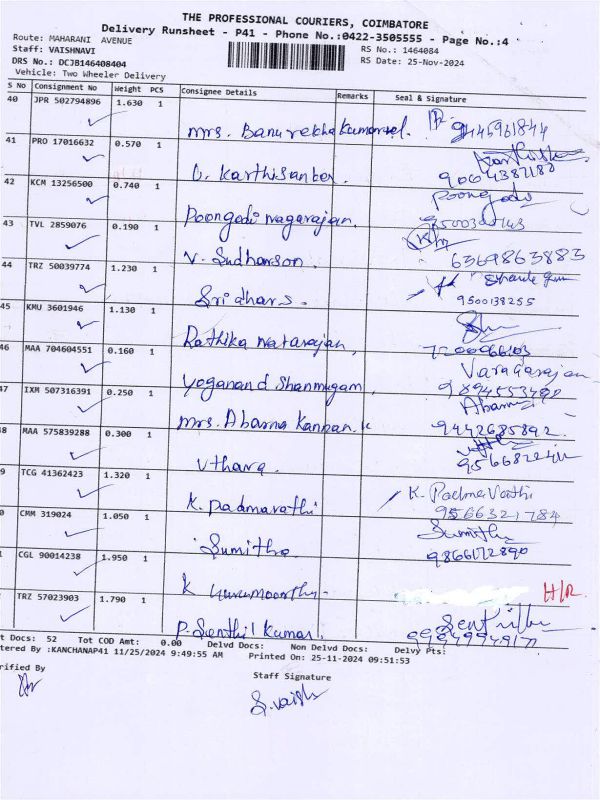 THE PROFESSIONAL COURIERS, COIMBATORE
Delivery Runsheet - P41 - Phone No.:0422-3505555 - Page No.:4
Route: MAHARANI AVENUE
RS No.: 1464084
Staff: VAISHNAVI
RS Date: 25-Nov-2024
DRS No.: DCJB146408404
Vehicle: Two Wheeler Delivery
S No Consignment No Weight PCS Consignee Details Remarks Seal & Signature
40 JPR 502794896 1.630 1
Mrs. Banurekha Kumarvel. 9445961844
41 PRO 17016632 0.570 1
Karthisankes.
42 KCM 13256500 0.740 1
Poongodi Nagarajan. Poongodi
43 TVL 2859076 0.190 1
V. Sudharson. 6369863883
44 TRZ 50039774 1.230 1
Sridhar S. 9500138255
45 KMU 3601946 1.130 1
Rathika Natarajan,
46 MAA 704604551 0.160 1
Yoganand Shanmugam, Varagarajan
47 IXM 507316391 0.250 1
Mrs. Abarna Kannan. K 9442685892.
48 MAA 575839288 0.300 1
Uthara.
9 TCG 41362423 1.320 1
K. Padmavathi K. Padmavathi
9566321784
0 CMM 319024 1.050 1
Sumitha. Sumitha
9866172890
1 CGL 90014238 1.950 1
K Gurumoorthy. H/R
2 TRZ 57023903 1.790 1
P. Senthil Kumar.
t Docs: 52 Tot COD Amt: 0.00 Delvd Docs: Non Delvd Docs: Delvy Pts:
tered By :KANCHANAP41 11/25/2024 9:49:55 AM Printed On: 25-11-2024 09:51:53
rified By Staff Signature
S. Vaish